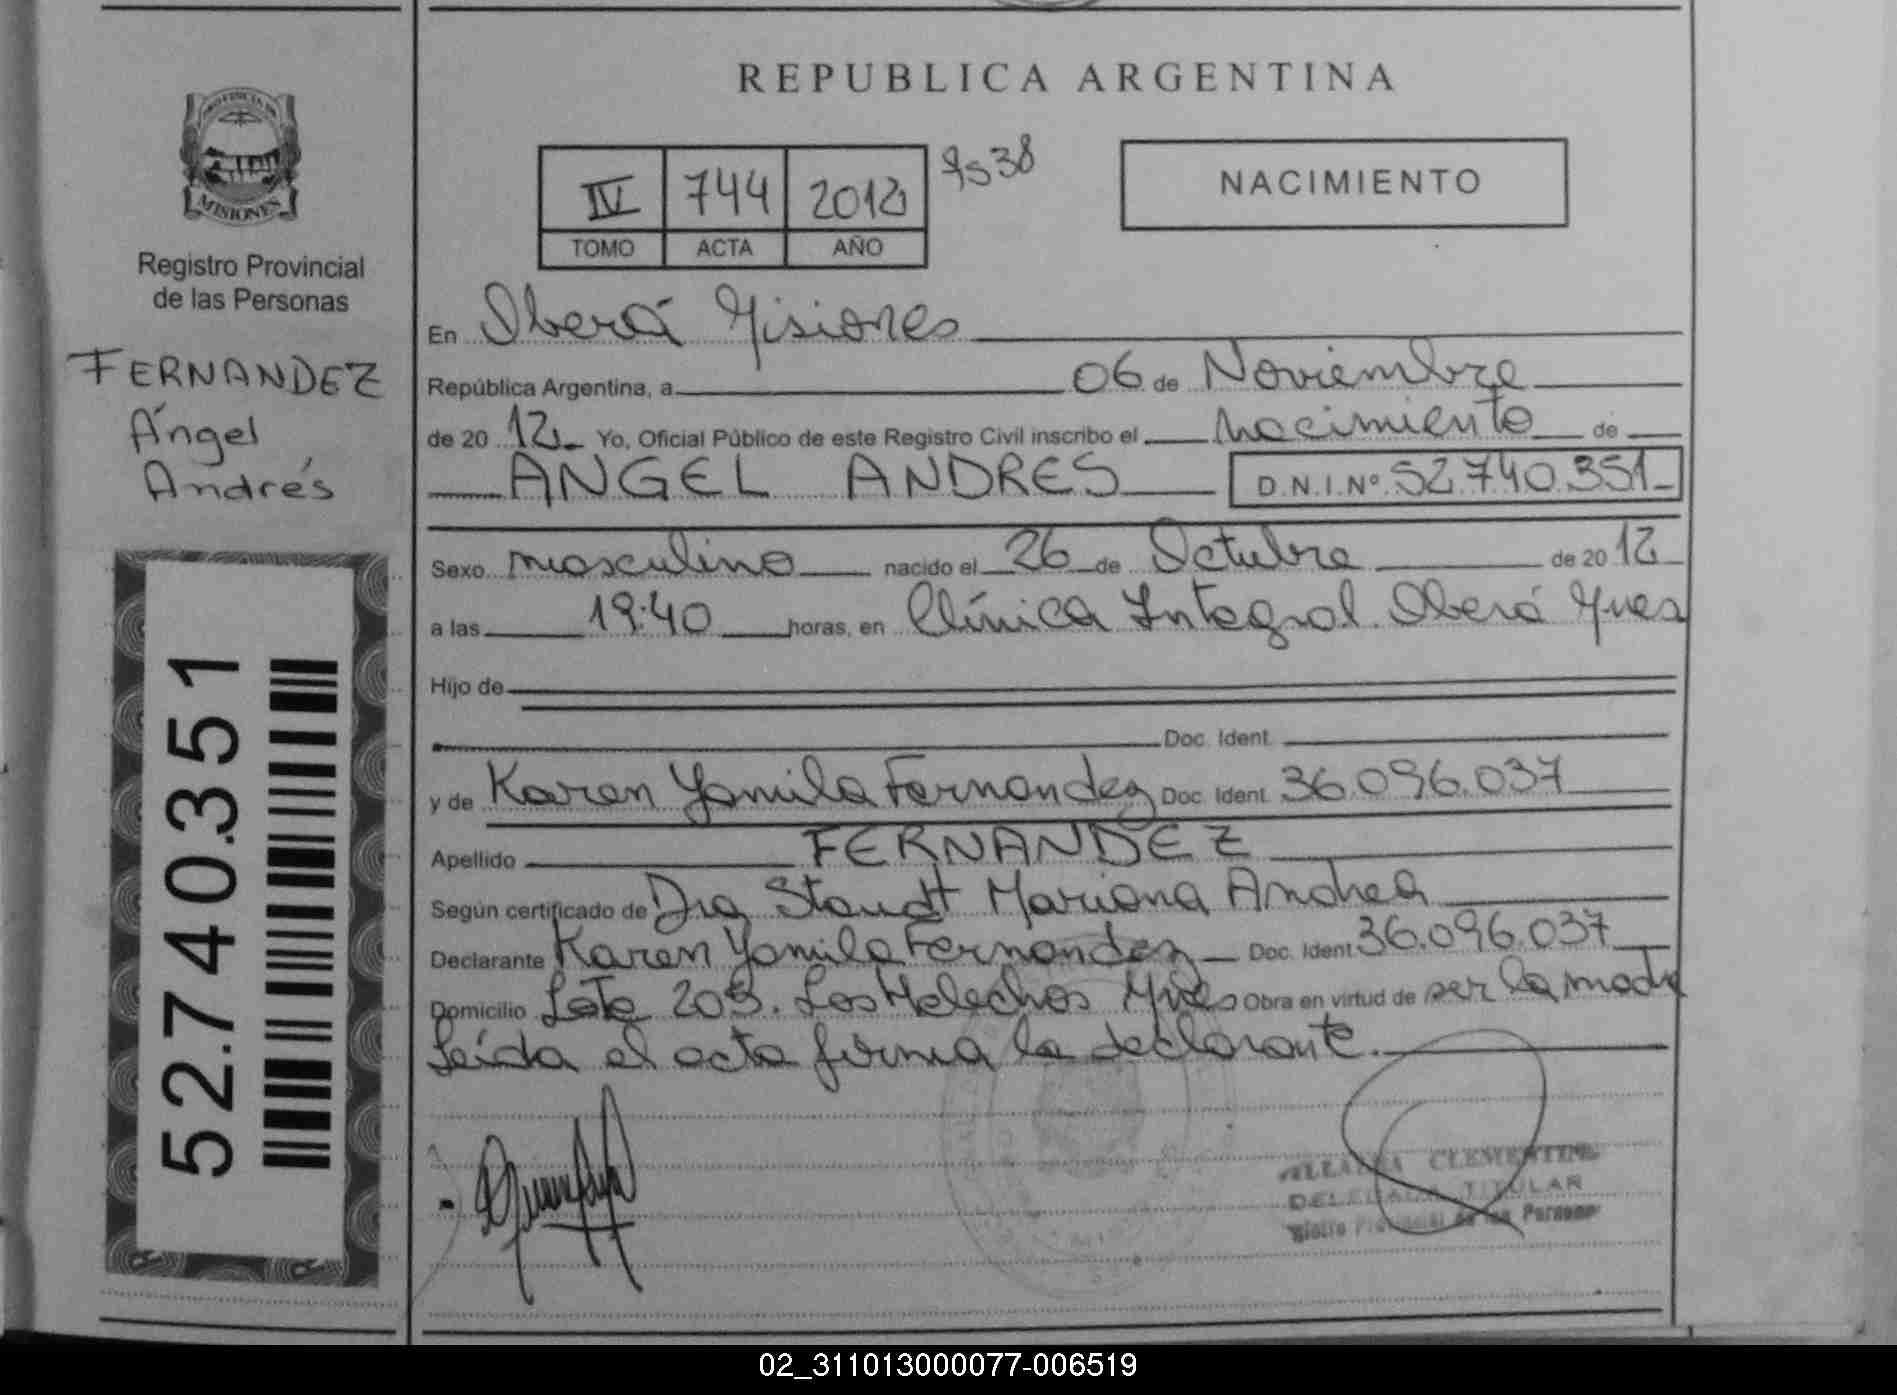 REPUBLICA ARGENTINA
PROVINCIA DE
MISIONES
Registro Provincial
de las Personas
FERNANDEZ
Ángel
Andrés
52.740.351
IV 744 2012 9538
TOMO ACTA AÑO
NACIMIENTO
En Oberá Misiones
República Argentina, a 06 de Noviembre
de 20 12 Yo, Oficial Público de este Registro Civil inscribo el Nacimiento de
ANGEL ANDRES D.N.I.Nº 52.740.351
Sexo masculino nacido el 26 de Octubre de 20 12
a las 19:40 horas, en Clínica Integral. Oberá Mnes
Hijo de
Doc. Ident.
y de Karen Yamila Fernandez Doc. Ident. 36.096.037
Apellido FERNANDEZ
Según certificado de Dra Staudt Mariana Andrea
Declarante Karen Yamila Fernandez Doc. Ident. 36.096.037
Domicilio Lote 203. Los Helechos Mnes Obra en virtud de ser la madre
Leída el acta firma la declarante.
CLEMENTINA
DELEGADA TITULAR
Registro Provincial de las Personas
02_311013000077-006519